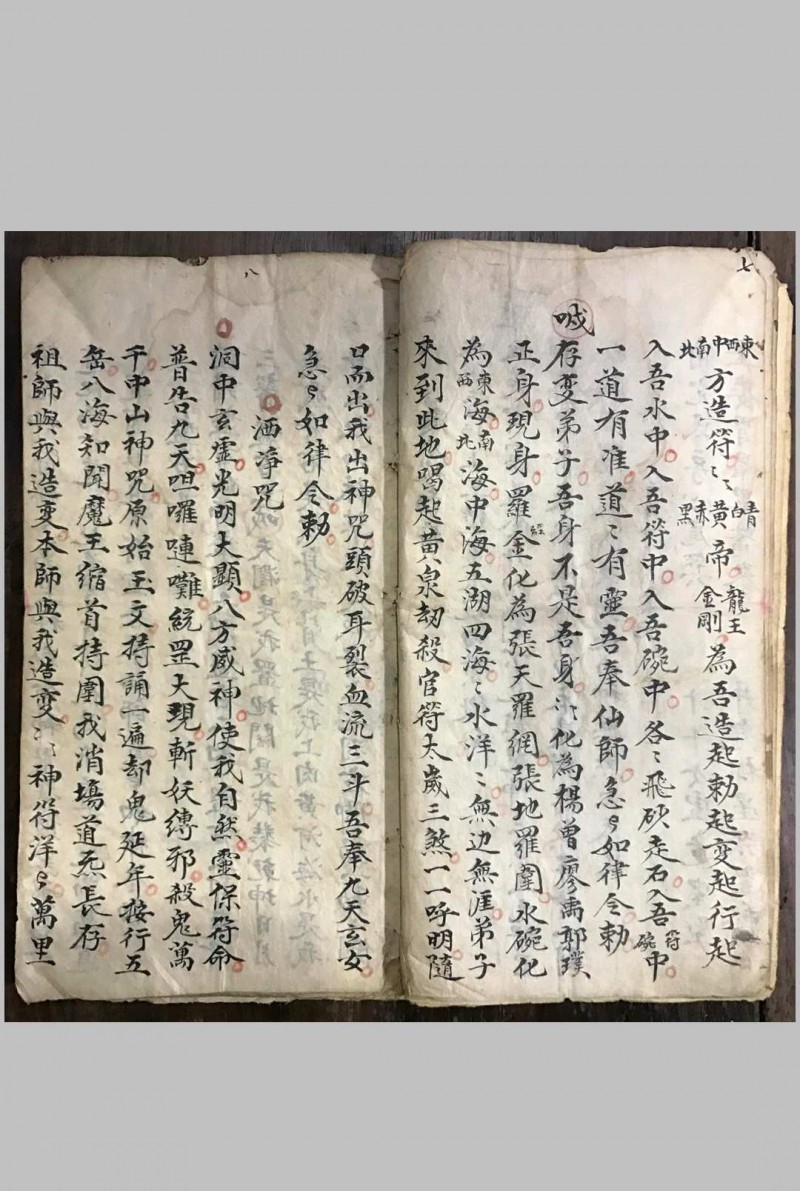 七
東西中南北方造符〻青白黃赤黑帝龍王金剛為吾造起勅起變起行起
入吾水中入吾符中入吾碗中各〻飛砂走石入吾符碗中
一道有准道〻有靈吾奉仙師急〻如律令勅
喊
存變弟子吾身不是吾身〻〻化為楊曾廖禹郭璞
正身現身羅經金化為張天羅網張地羅圍水碗化
為東西海南北海中海五湖四海〻水洋〻無边無涯弟子
來到此地喝起黃泉刧殺官符太歲三煞一一呼明隨
八
口而出我出神咒頭破耳裂血流三斗吾奉九天玄女
急〻如律令勅
洒净咒
洞中玄虛光明大顯八方威神使我自然靈保符命
普告九天呾囉嗹囄統罡大現斬妖縛邪殺鬼萬
千中山神咒原始玉文持誦一遍却鬼延年按行五
岳八海知聞魔王縮首持圍我消塲道炁長存
祖師與我造變本師與我造變〻〻神符洋〻萬里